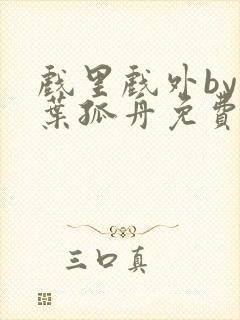 戲里戲外by
葉孤舟免費
三口真